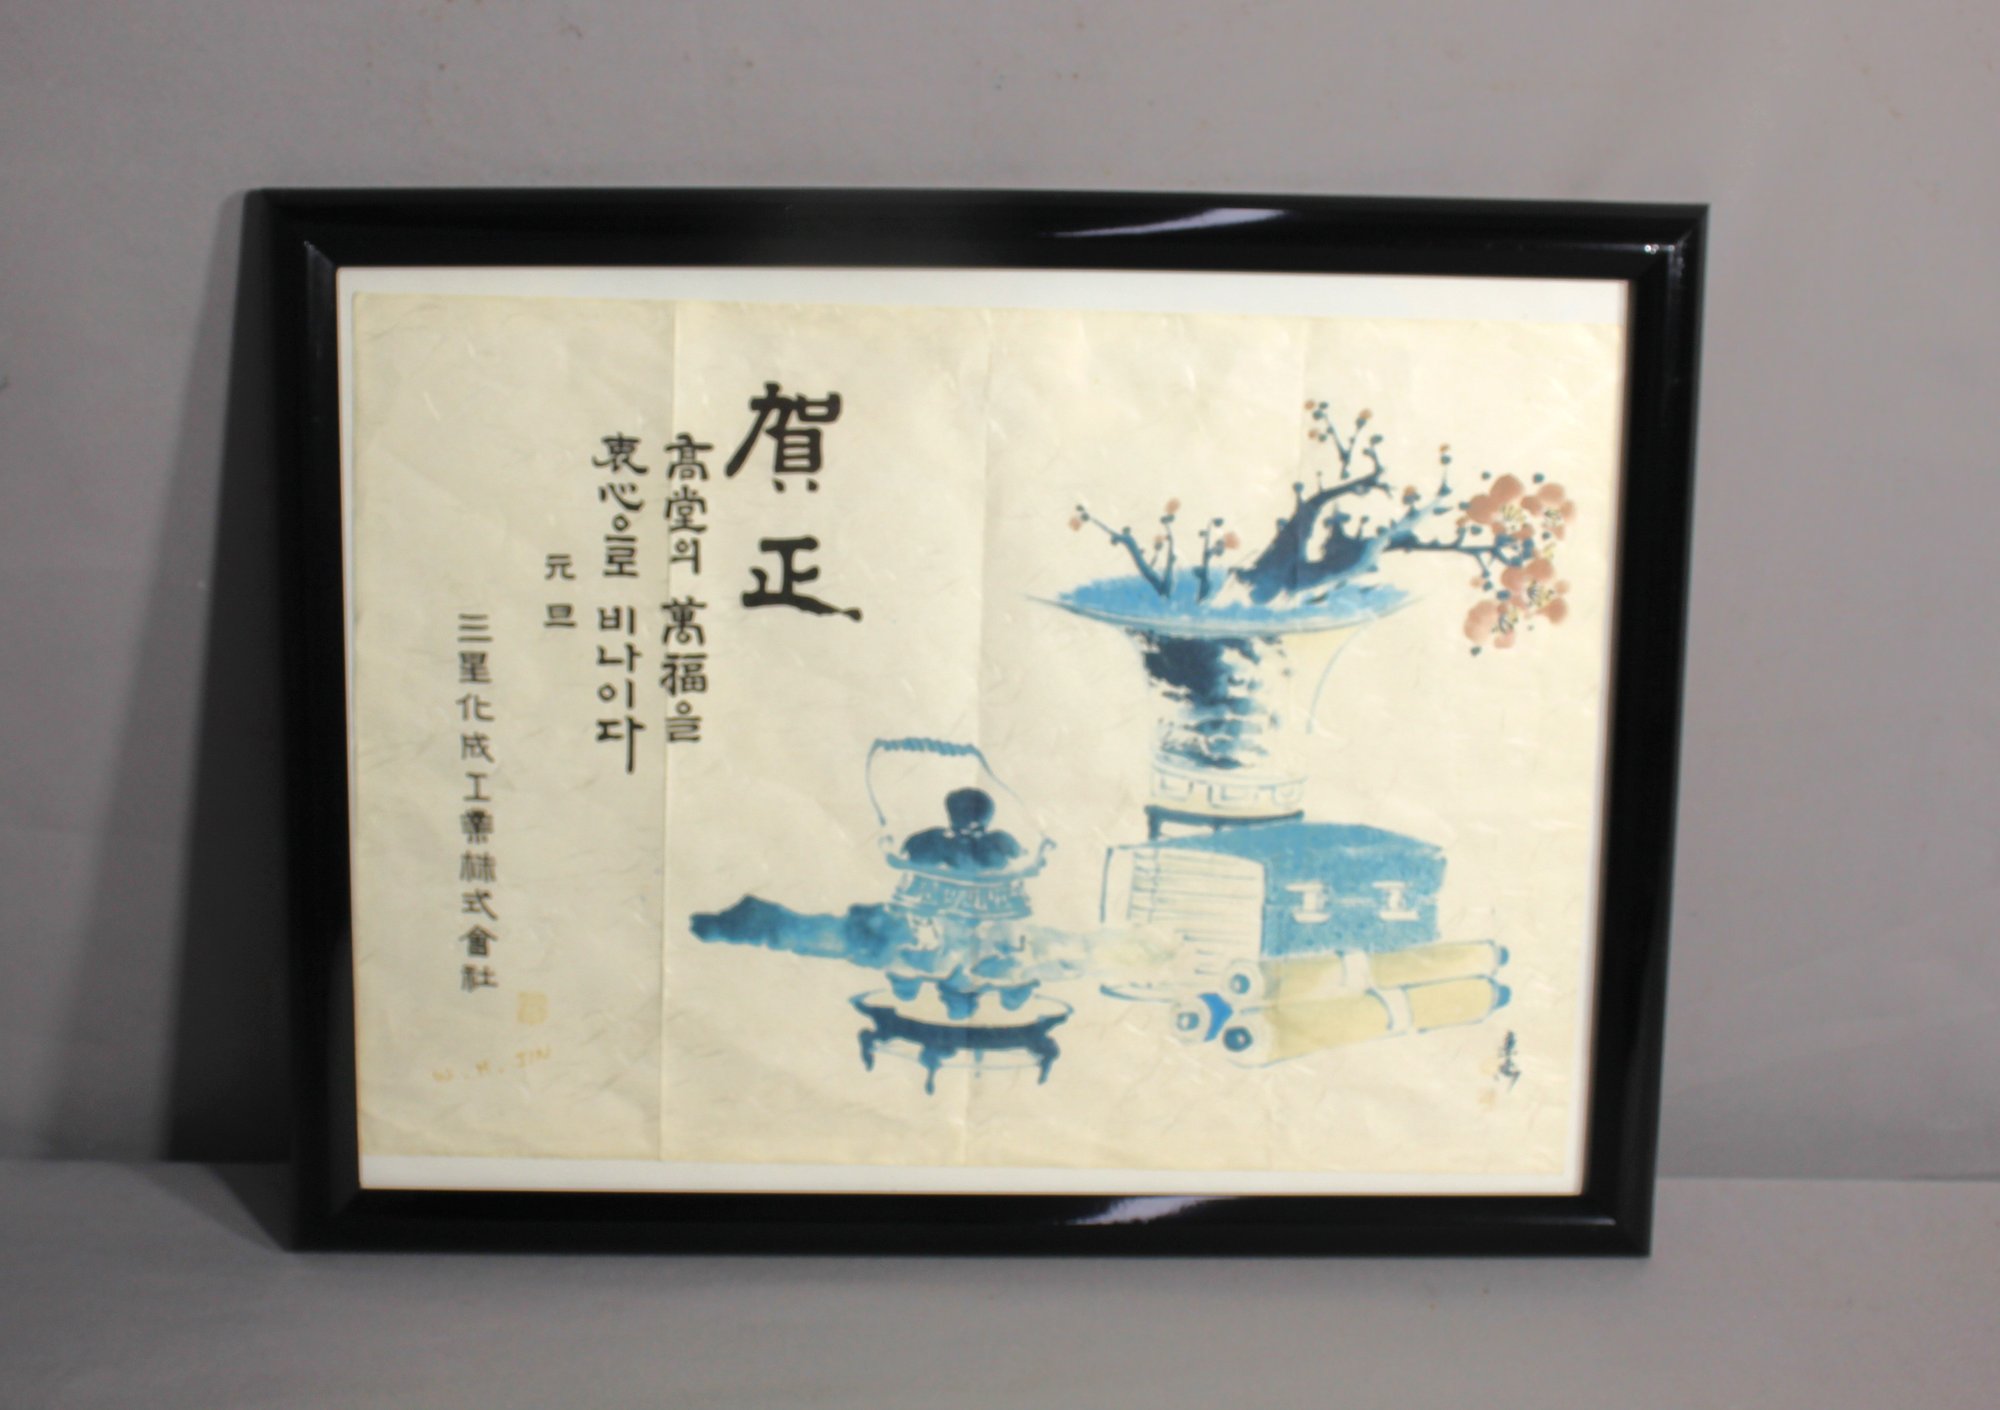 賀正
高堂의 萬福을
衷心으로 비나이다
元旦
三星化成工業株式會社
W. H. JIN